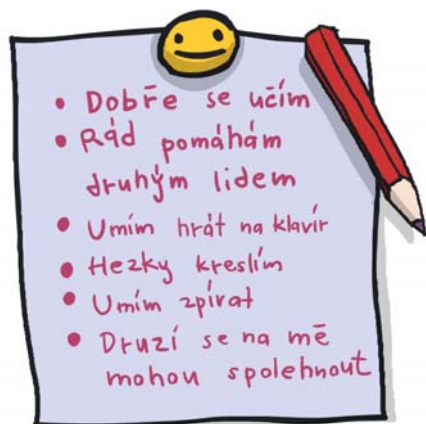 • Dobře se učím
• Rád pomáhám
druhým lidem
• Umím hrát na klavír
• Hezky kreslím
• Umím zpívat
• Druzí se na mě
mohou spolehnout